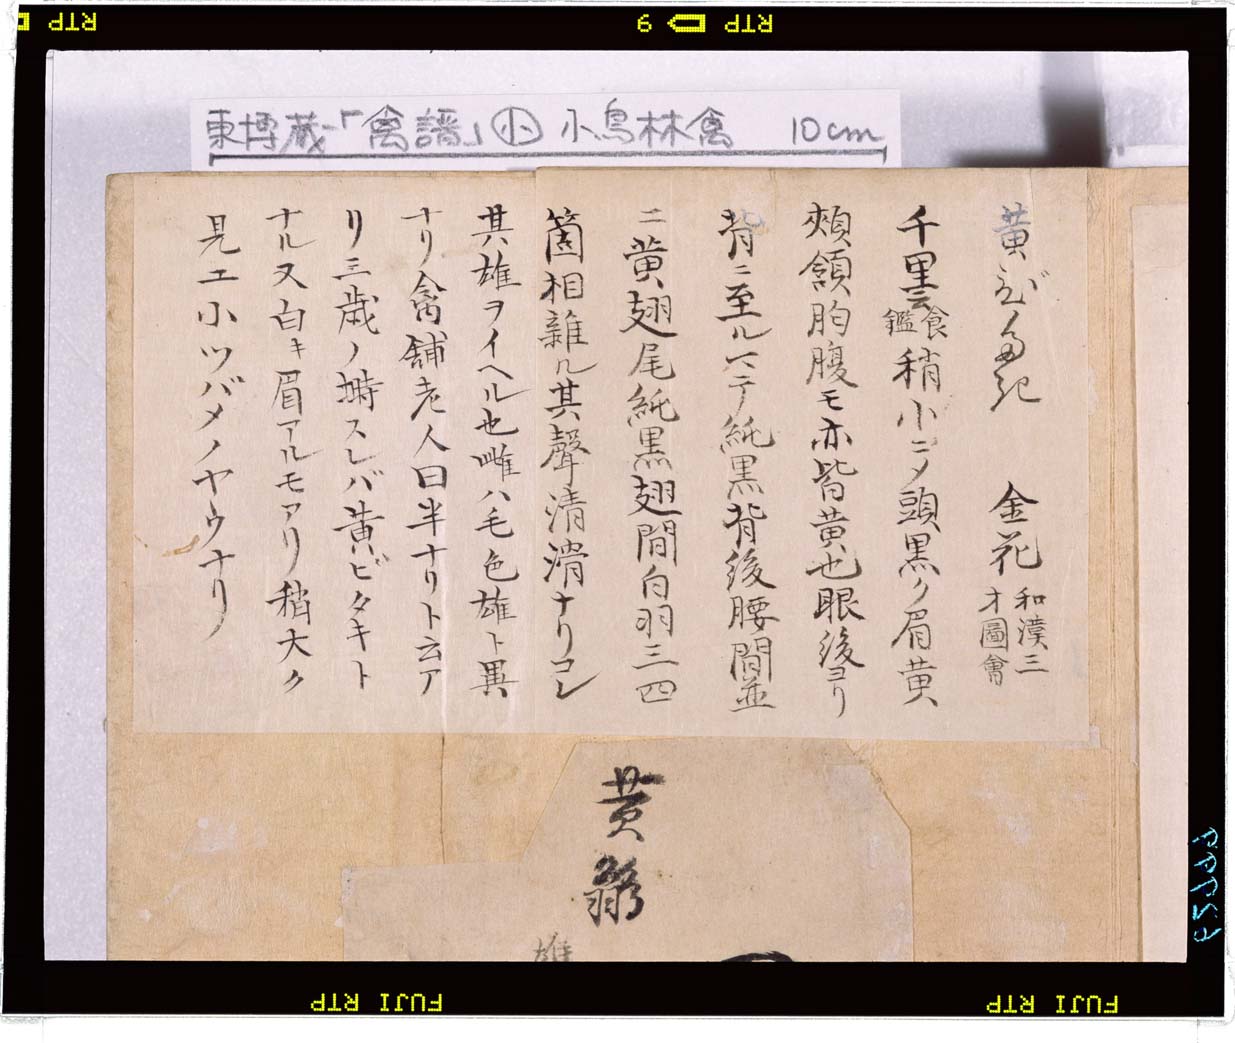 RTP
9
RTP
東博蔵「禽譜」㋛ 小鳥林禽 10cm
黄びたき 金花 和漢三才圖會
千里云 食鑑 稍小ニメ頭黒ク眉黄
頰頷胸腹モ亦皆黄也眼後ヨリ
背ニ至ルマテ純黒背後腰間並
ニ黄翅尾純黒翅間白羽三四
箇相雜ル其聲清滑ナリコレ
其雄ヲイヘル也雌ハ毛色雄ト異
ナリ禽舗老人曰半ナリト云ア
リ三歳ノ塒スレバ黄ビタキト
ナル又白キ眉アルモアリ稍大ク
見エ小ツバメノヤウナリ
黄鶲
雄
FUJI RTP
FUJI RTP